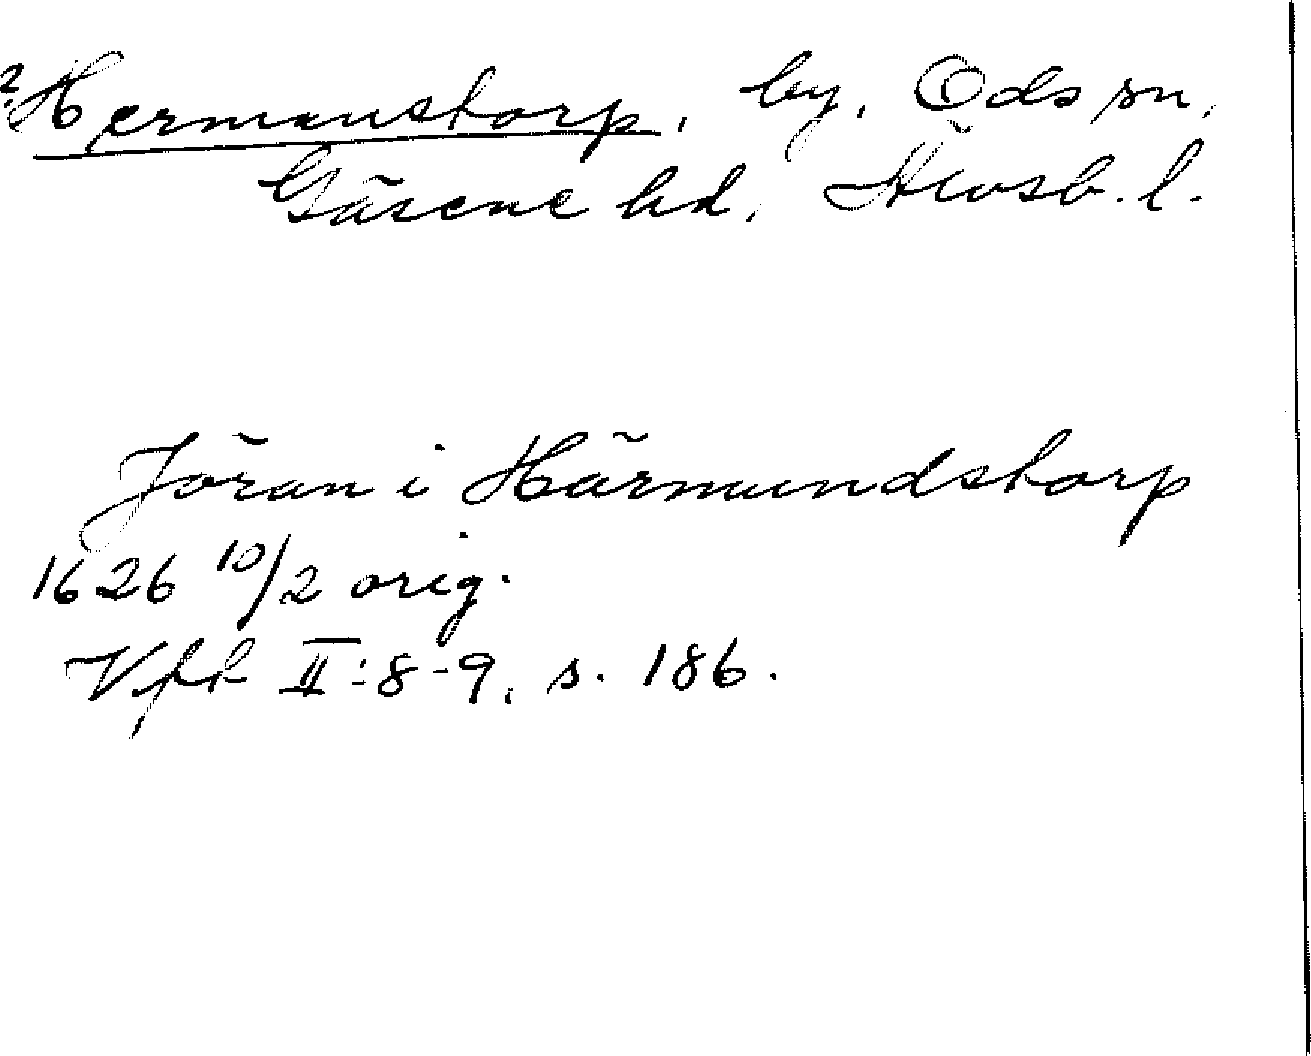 ? Hermanstorp, by, Ods sn,
Gäsene hd, Älvsb. l.
Jöran i Härmundstorp
1626 10/2 orig.
Vfft II:8-9, s. 186.